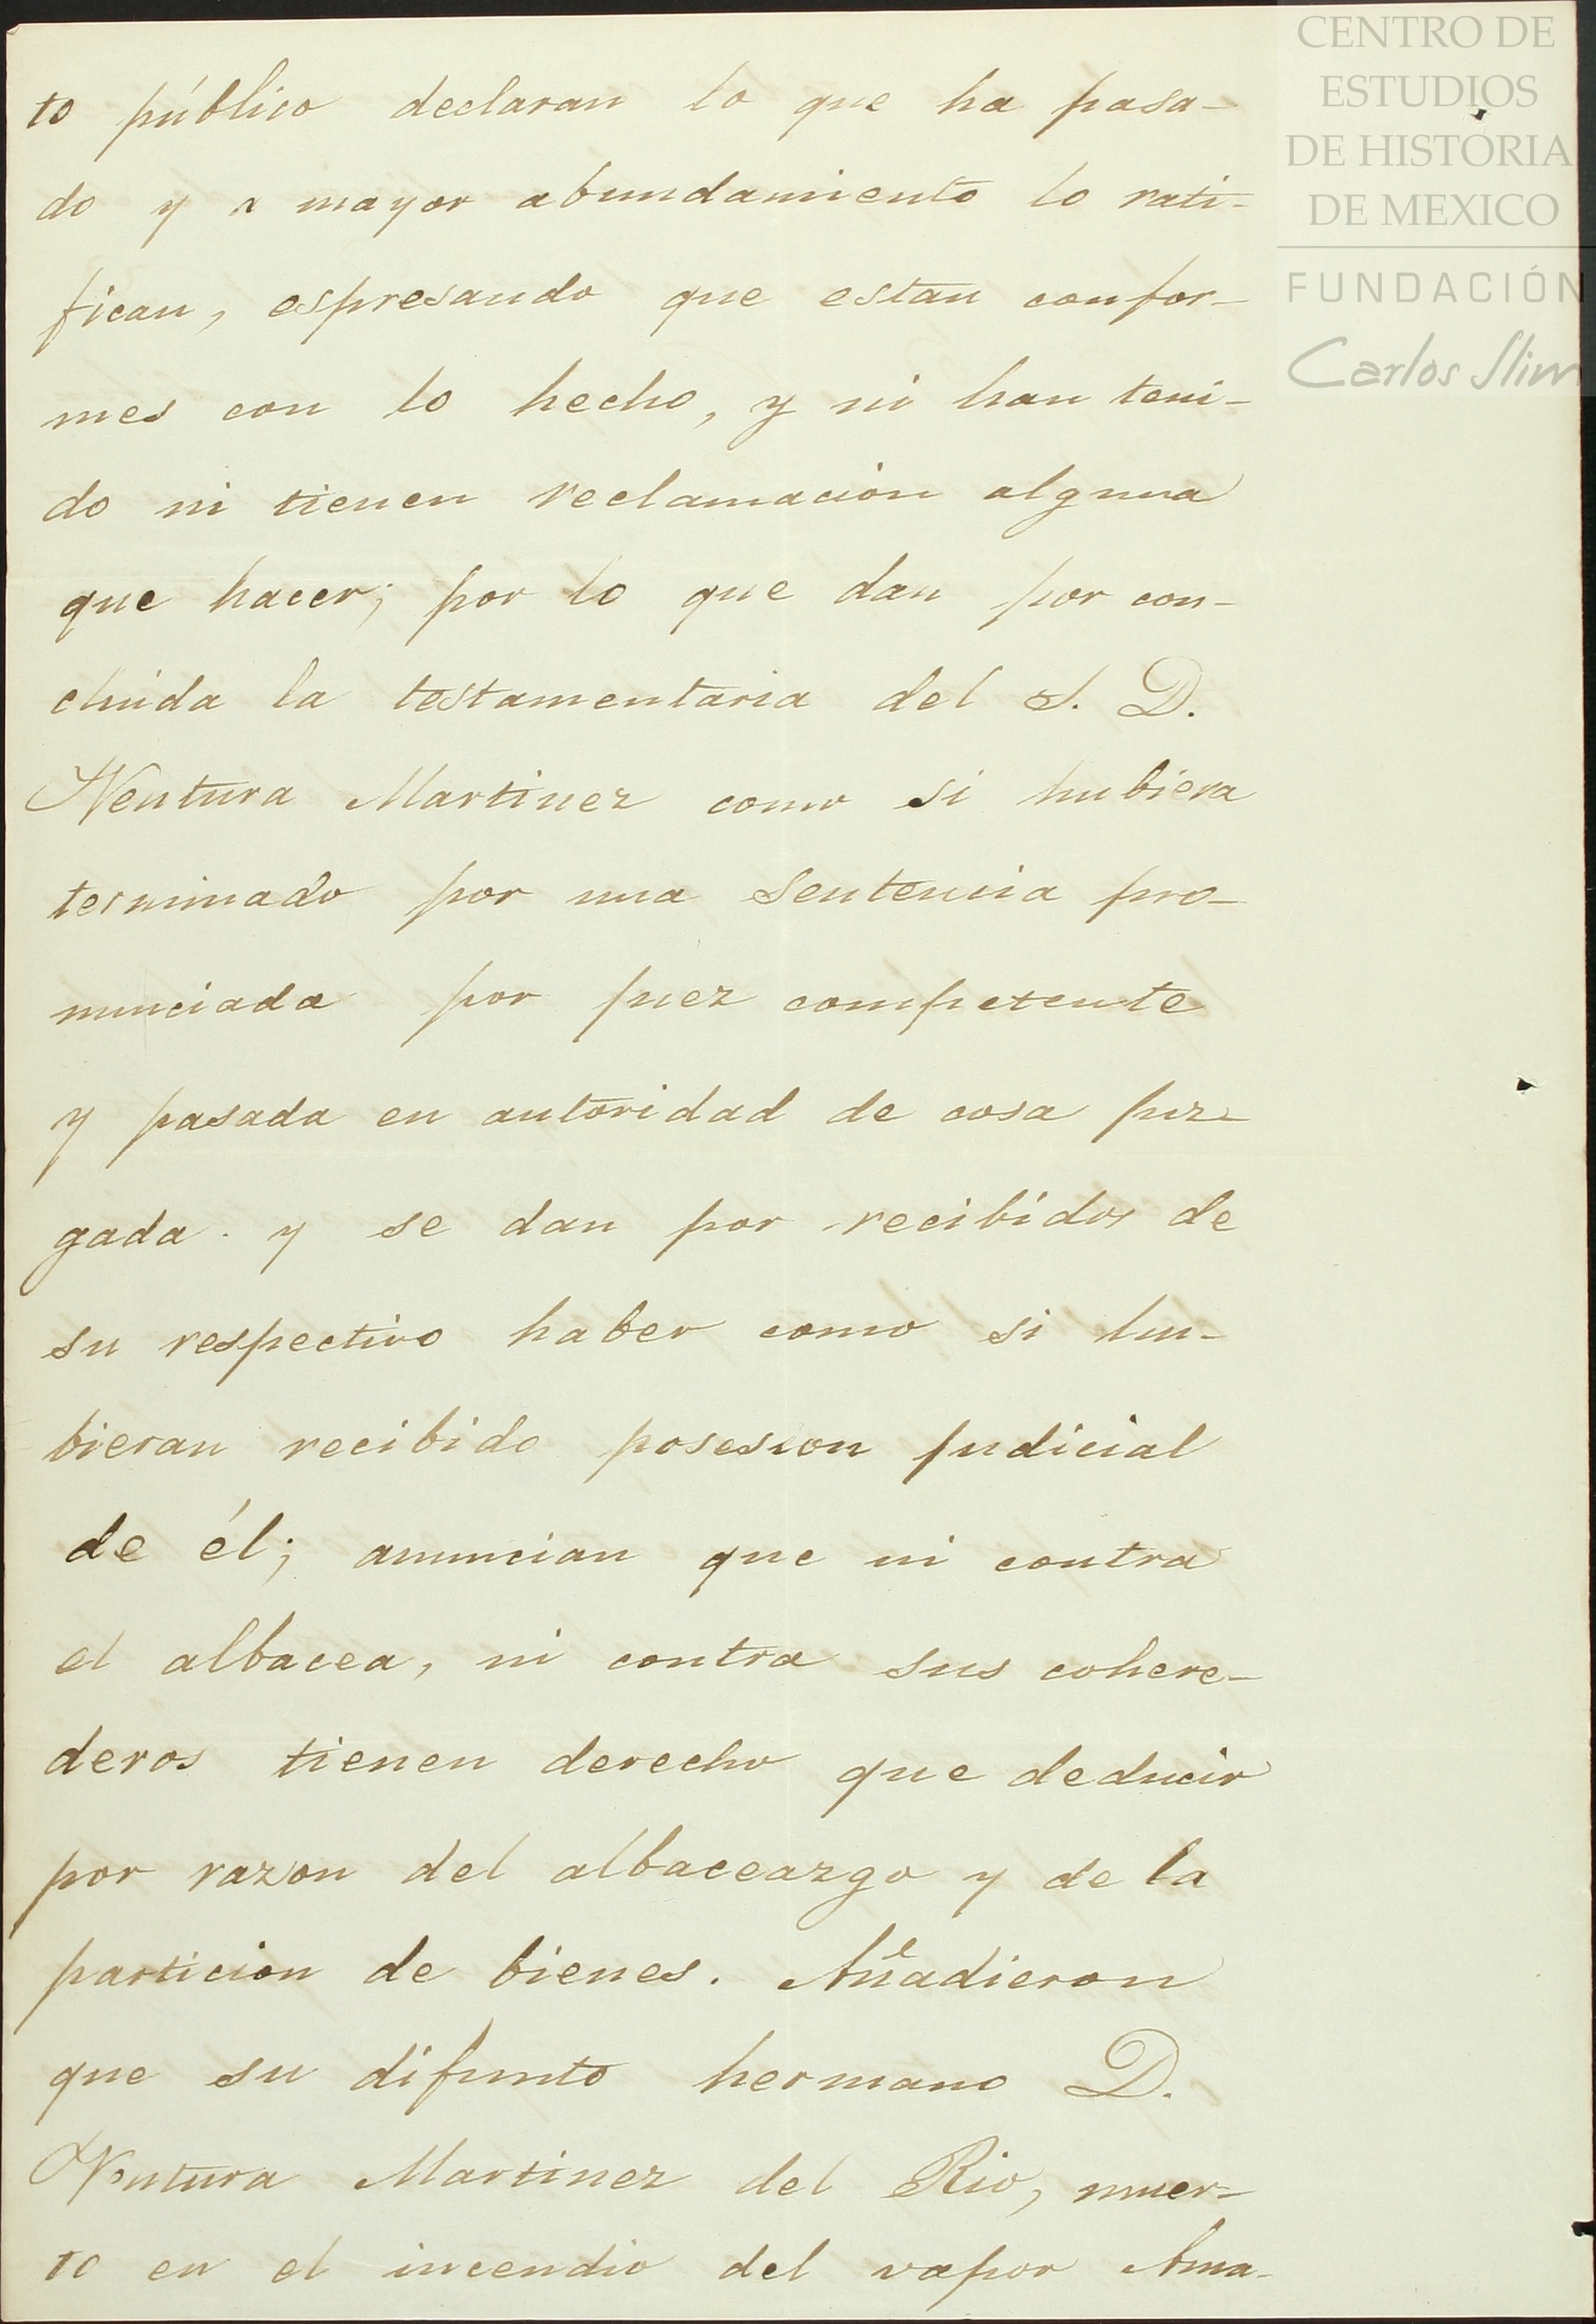 CENTRO DE
ESTUDIOS
DE HISTORIA
DE MEXICO
FUNDACIÓN
Carlos Slim
to público declaran lo que ha pasa-
do y a mayor abundamiento lo rati-
fican, espresando que estan confor-
mes con lo hecho, y ni han teni-
do ni tienen reclamación alguna
que hacer; por lo que dan por con-
cluida la testamentaria del S. D.
Ventura Martinez como si hubiera
terminado por una sentencia pro-
nunciada por juez competente
y pasada en autoridad de cosa juz-
gada. y se dan por recibidos de
su respectivo haber como si hu-
bieran recibido posesion judicial
de él; anuncian que ni contra
el albacea, ni contra sus cohere-
deros tienen derecho que deducir
por razon del albaceazgo y de la
particion de bienes. Añadieron
que su difunto hermano D.
Ventura Martinez del Rio, muer-
to en el incendio del vapor Ama-